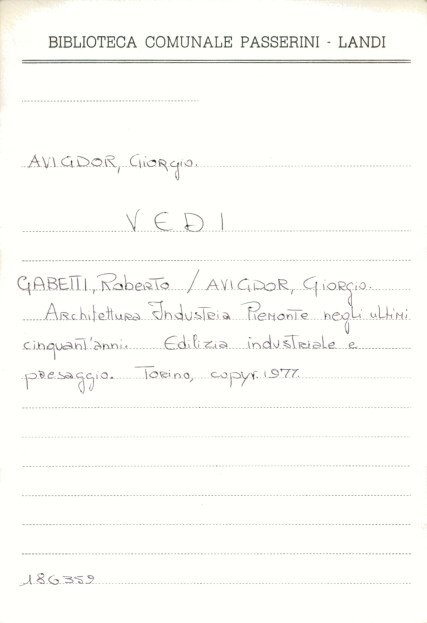 BIBLIOTECA COMUNALE PASSERINI - LANDI
AVIGDOR, Giorgio.
VEDI
GABETTI, Roberto / AVIGDOR, Giorgio.
Architettura Industria Piemonte negli ultimi
cinquant'anni. Edilizia industriale e
paesaggio. Torino, copyr. 1977.
186359